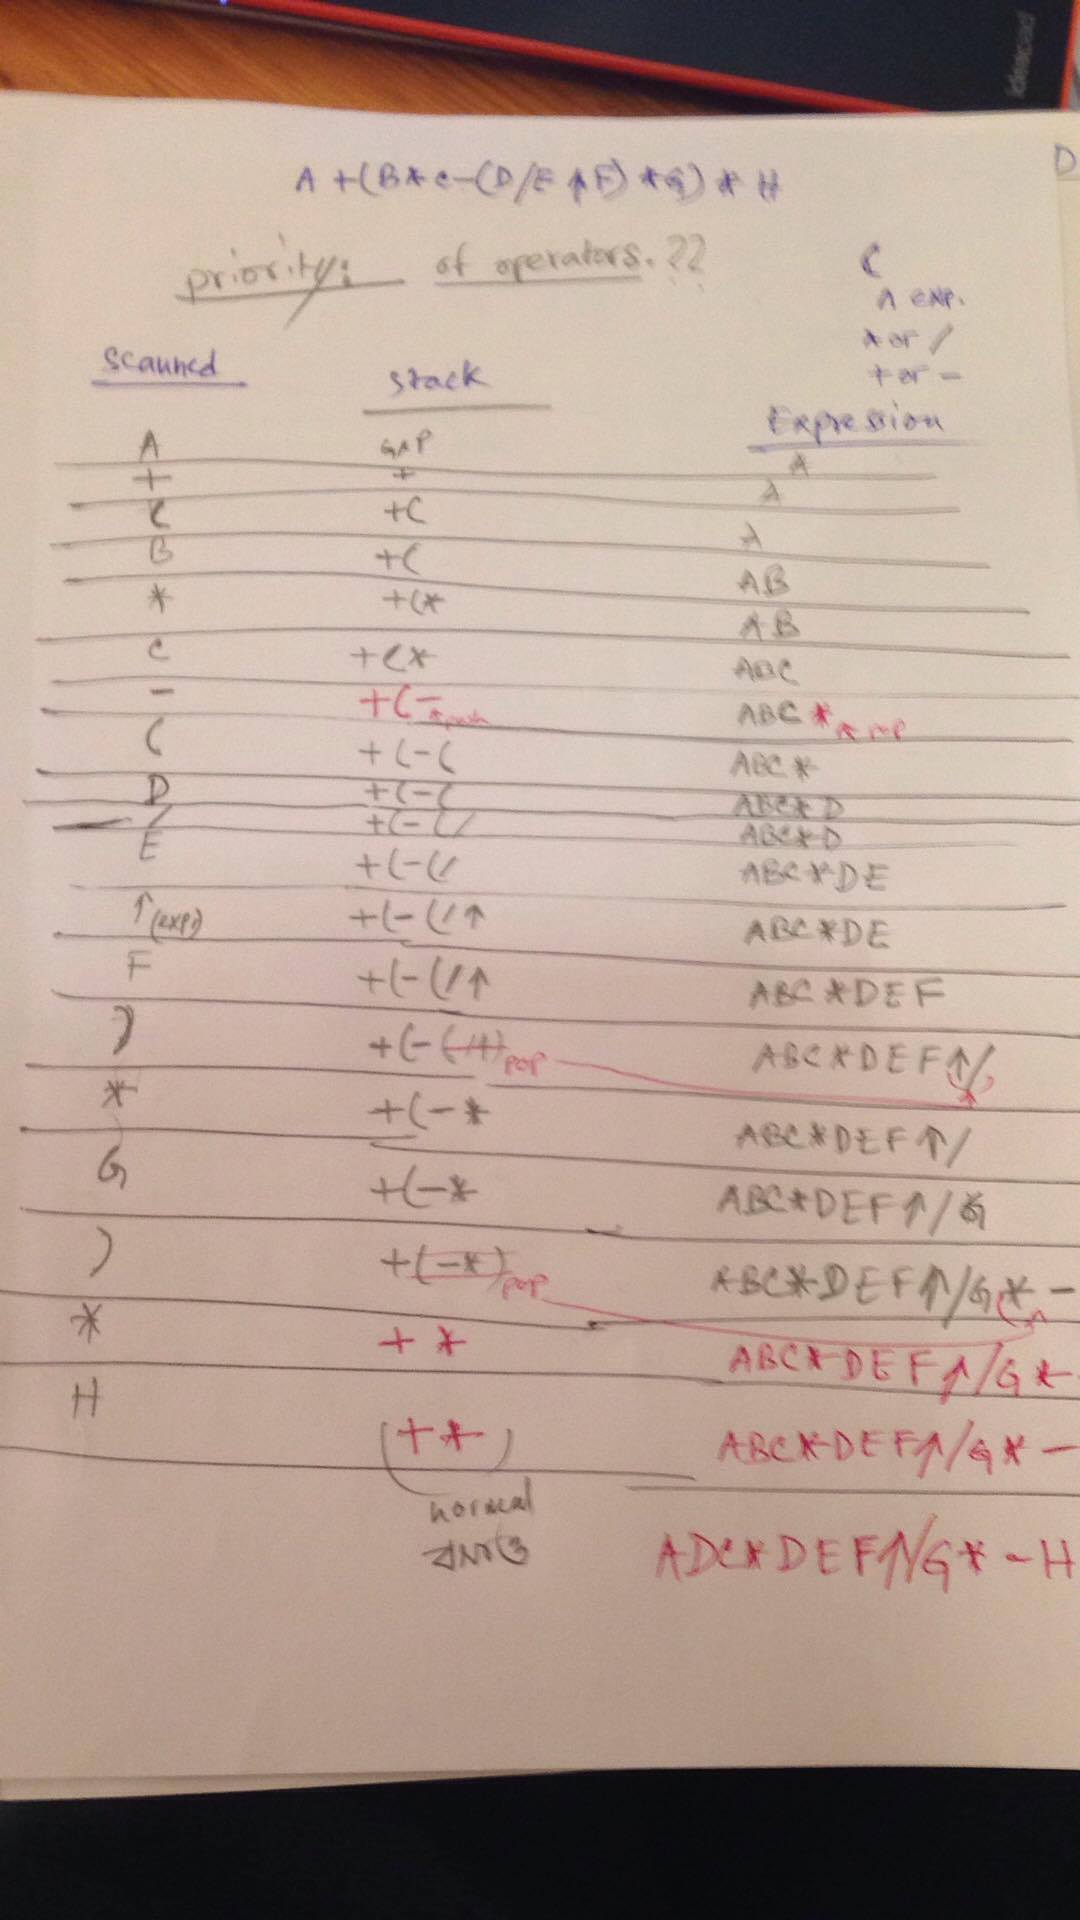 ideapad
D
A + (B * C - (D / E ↑ F) * G) * H
priority: of operators. ??
(
^ exp.
* or /
+ or -
Scanned stack Expression
A GAP A
+ + A
( +( A
B +( AB
* +(* AB
C +(* ABC
- +(- * push ABC * * pop
( +(-( ABC*
D +(-( ABC*D
/ +(-(/ ABC*D
E +(-(/ ABC*DE
↑(exp) +(-(/↑ ABC*DE
F +(-(/↑ ABC*DEF
) +(-(/↑) pop ABC*DEF↑/
* +(-* ABC*DEF↑/
G +(-* ABC*DEF↑/G
) +(-*) pop ABC*DEF↑/G*-
* +* ABC*DEF↑/G*-
H (+*) ABC*DEF↑/G*-
normal
ADC*DEF↑/G*-H